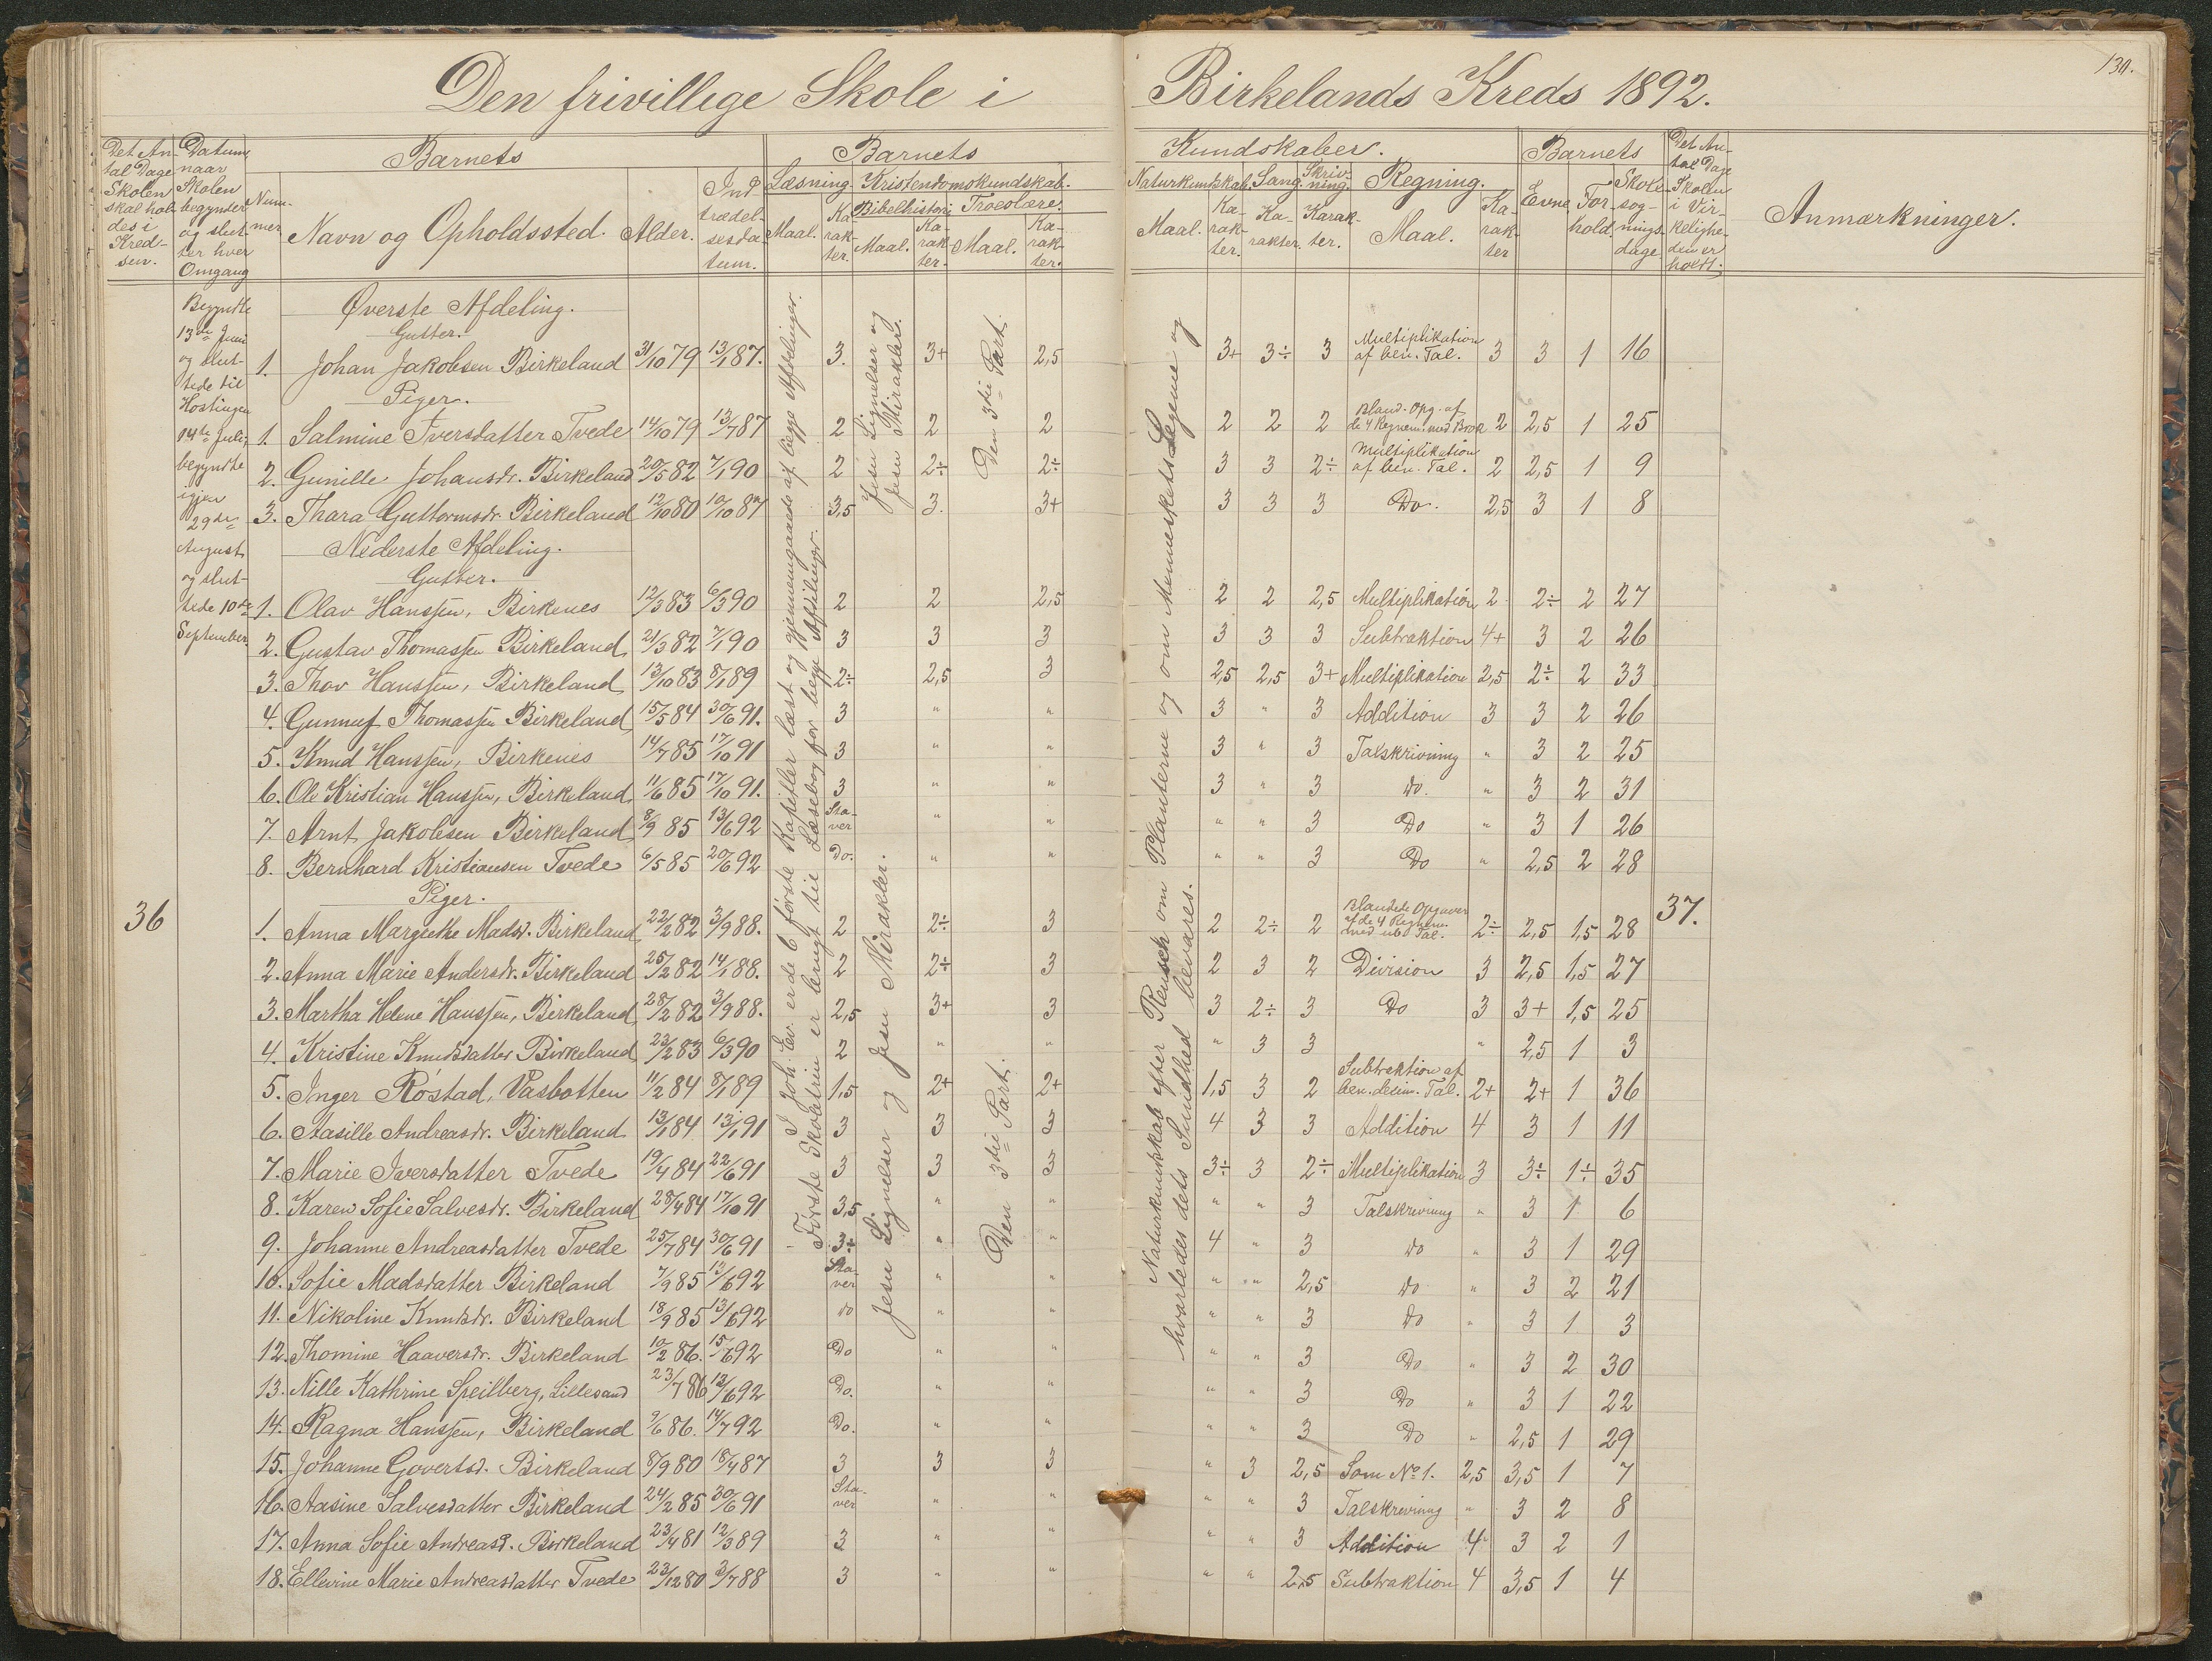 130.
Den frivillige Skole i Birkelands Kreds 1892.
Det Antal Dage Skolen skal holdes i Kredsen.
Datum naar Skolen begynder og slutter hver Omgang
Barnets
Nummer
Navn og Opholdssted.
Alder.
Indtrædelsesdatum.
Barnets Kundskaber.
Læsning. Maal. Karakter.
Kristendomskundskab.
Bibelhistorie Maal. Karakter.
Troeslære. Maal. Karakter.
Naturkundskab. Maal. Karakter.
Sang. Karakter.
Skrivning. Karakter.
Regning. Maal. Karakter
Barnets
Evne
Forhold
Skolesøgningsdage
Det Antal Dage Skolen i Virkeligheden er holdt.
Anmærkninger.
Begyndte
13de Juni
og slut-
tede til
Hostingen
14de Juli,
begyndte
igjen
29de
August
og slut-
tede 10de
September.
36
I Joh. Ev. er de 6 første Kapitler læst og gjennemgaaede af begge Afdelinger.
Første Skoletrin er brugt til Læsebog for begge Afdelinger.
Jesu Lignelser og
Jesu Mirakler.
Den 3die Part.
Jesu Lignelser og Jesu Mirakler.
Den 3die Part.
Naturkundskab efter Reusch om Planterne og om Menneskets Legeme og
hvorledes dets Sundhed bevares.
Øverste Afdeling.
Gutter.
1. Johan Jakobsen Birkeland 31/10 79 13/1 87. 3. 3+ 2,5 3+ 3÷ 3 Multiplikation af ben. Tal. 3 3 1 16
Piger.
1. Salmine Iversdatter Tvede 14/10 79 13/7 87 2 2 2 2 2 2 Bland. Opg. af de 4 Regnem. med Brok 2 2,5 1 25
2. Gunille Johansdr. Birkeland 20/5 82 7/1 90 2 2÷ 2÷ 3 3 2÷ Multiplikation af ben. Tal. 2 2,5 1 9
3. Thara Guttormsdr. Birkeland 12/10 80 10/10 87 3,5 3. 3+ 3 3 3 Do. 2,5 3 1 8
Nederste Afdeling.
Gutter.
1. Olav Hanssen, Birkenes 12/3 83 6/3 90 2 2 2,5 2 2 2,5 Multiplikation 2 2÷ 2 27
2. Gustav Thomassen Birkeland 21/3 82 7/1 90 3 3 3 3 3 3 Subtraktion 4+ 3 2 26
3. Thov Hanssen, Birkeland 13/10 83 8/1 89 2÷ 2,5 3 2,5 2,5 3+ Multiplikation 2,5 2÷ 2 33
4. Gunnuf Thomassen Birkeland 15/5 84 30/6 91. 3 " " 3 " 3 Addition 3 3 2 26
5. Knud Hanssen, Birkenes 14/7 85 17/10 91 3 " " 3 " 3 Talskrivning " 3 2 25
6. Ole Kristian Hanssen, Birkeland 11/6 85 17/10 91. 3 " " 3 " 3 do. " 3 2 31
7. Arnt Jakobsen Birkeland 8/9 85 13/6 92 Staver " " " " 3 Do " 3 1 26
8. Bernhard Kristiansen Tvede 6/5 85 20/6 92 Do. " " " " 3 Do " 2,5 2 28
Piger.
1. Anna Margrethe Madsd. Birkeland 22/2 82 3/9 88. 2 2÷ 3 2 2÷ 2 Blandede Opgaver af de 4 Regnem. med ub. Tal. 2÷ 2,5 1,5 28 37.
2. Anna Marie Andersdr. Birkeland 25/2 82 14/1 88. 2 2÷ 3 2 3 2 Division 3 2,5 1,5 27
3. Martha Helene Hanssen, Birkeland 28/2 82 3/9 88. 2,5 3+ 3 3 2÷ 3 Do 3 3+ 1,5 25
4. Kristine Knudsdatter Birkeland 23/2 83 6/3 90 2 " " " 3 3 " 2,5 1 3
5. Inger Røstad, Vasbotten 11/2 84 8/1 89 1,5 2+ 2+ 1,5 3 2 Subtraktion af ben. desim. Tal. 2+ 2+ 1 36
6. Aasille Andreasdr. Birkeland 13/1 84 13/1 91 3 3 3 4 3 3 Addition 4 3 1 11
7. Marie Iversdatter Tvede 19/4 84 22/6 91 3 3 3 3÷ 3 2÷ Multiplikation 3 3÷ 1÷ 35
8. Karen Sofie Salvesdr. Birkeland 28/4 84 17/10 91 3,5 " " " " 3 Talskrivning " 3 1 6
9. Johanne Andreasdatter Tvede 25/7 84 30/6 91 3÷ " " 4 " 3 do " 3 1 29
10. Sofie Madsdatter Birkeland 7/9 85 13/6 92 Staver " " " " 2,5 do " 3 2 21
11. Nikoline Knudsdr. Birkeland 18/9 85 13/6 92 do " " " " 3 do " 3 1 3
12. Thomine Haaversdr. Birkeland 10/2 86. 15/6 92 Do " " " " 3 Do " 3 2 30
13. Nille Kathrine Speilberg, Lillesand 23/7 86 13/6 92 Do. " " " " 3 Do " 3 1 22
14. Ragna Hanssen, Birkeland 9/6 86. 14/7 92 Do. " " " " 3 Do " 2,5 1 29
15. Johanne Govertsd. Birkeland 8/9 80 18/4 87 3 3 3 " 3 2,5 Som No 1. 2,5 3,5 1 7
16. Aasine Salvesdatter Birkeland 24/2 85 30/6 91 Staver " " " " 3 Talskrivning " 3 2 8
17. Anna Sofie Andreasd. Birkeland 23/4 81 12/3 89 3 " " " " 3 Addition 4 3 2 1
18. Ellevine Marie Andreasdatter Tvede 23/12 80 3/7 88 3 " " " " 2,5 Subtraktion 4 3,5 1 4